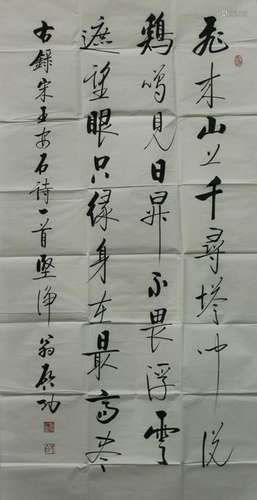 飛来山上千尋塔聞説
鷄鳴見日昇不畏浮雲
遮望眼只緣身在最高層
右録宋王安石詩一首堅浄翁啟功